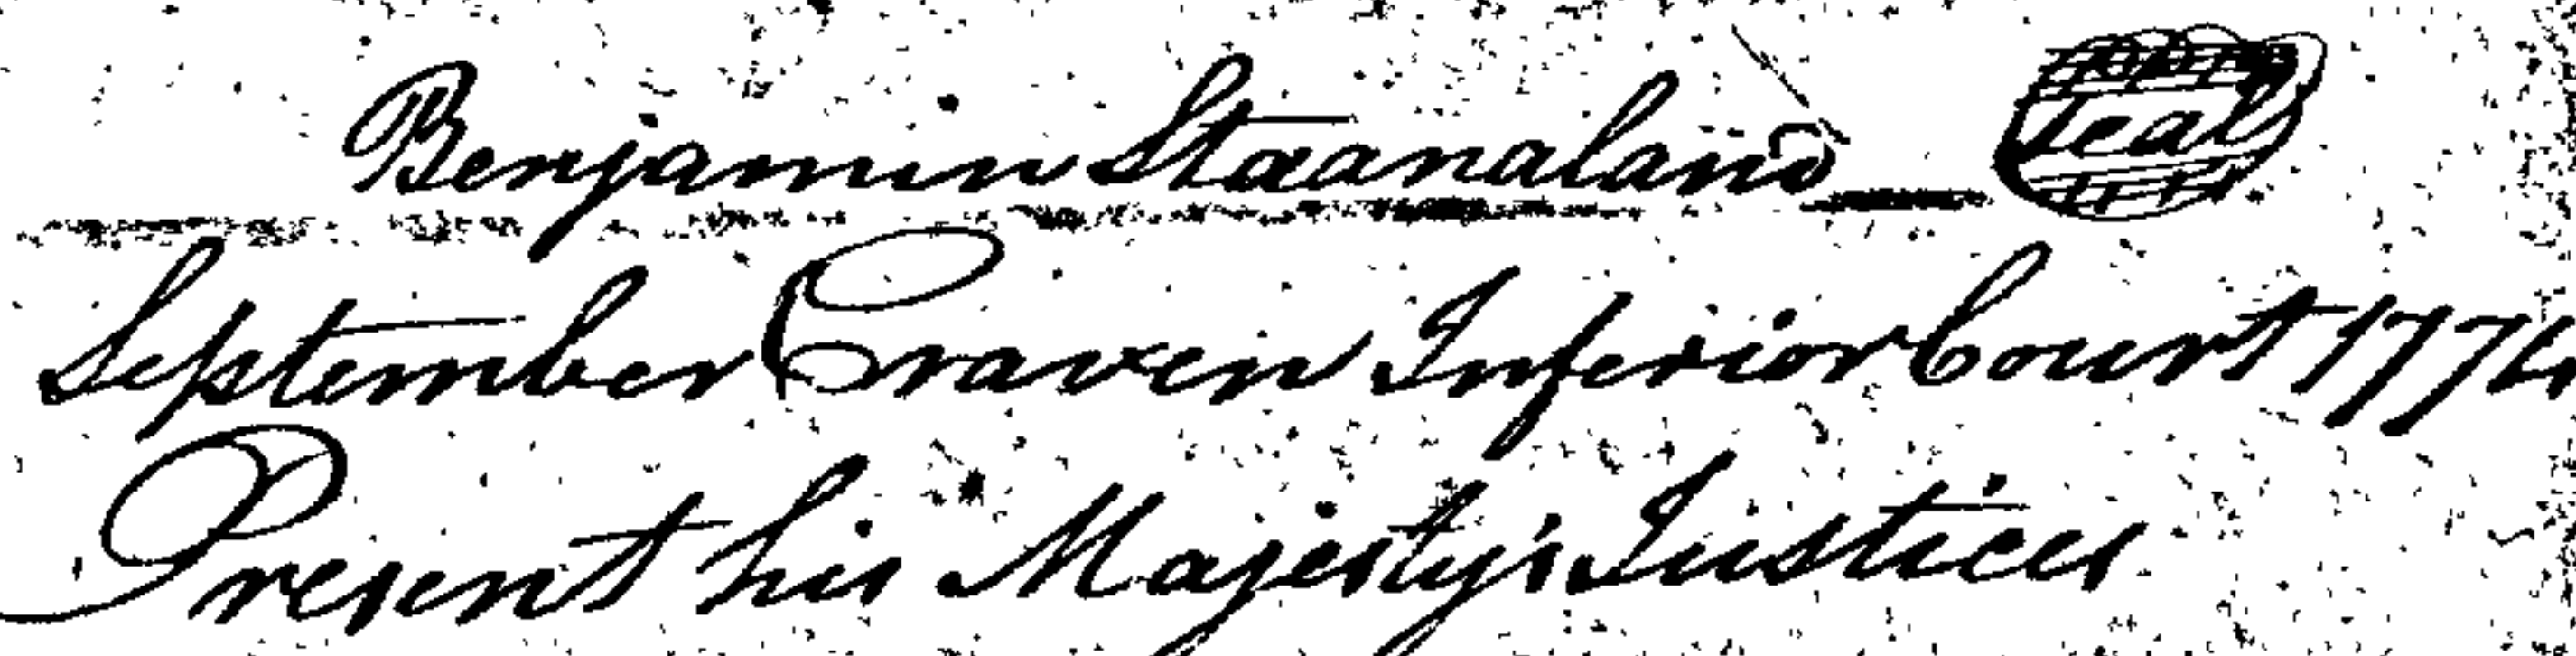 Benjamin Staanaland Seal
September Craven Inferior Court 1774
Present his Majesty's Justices